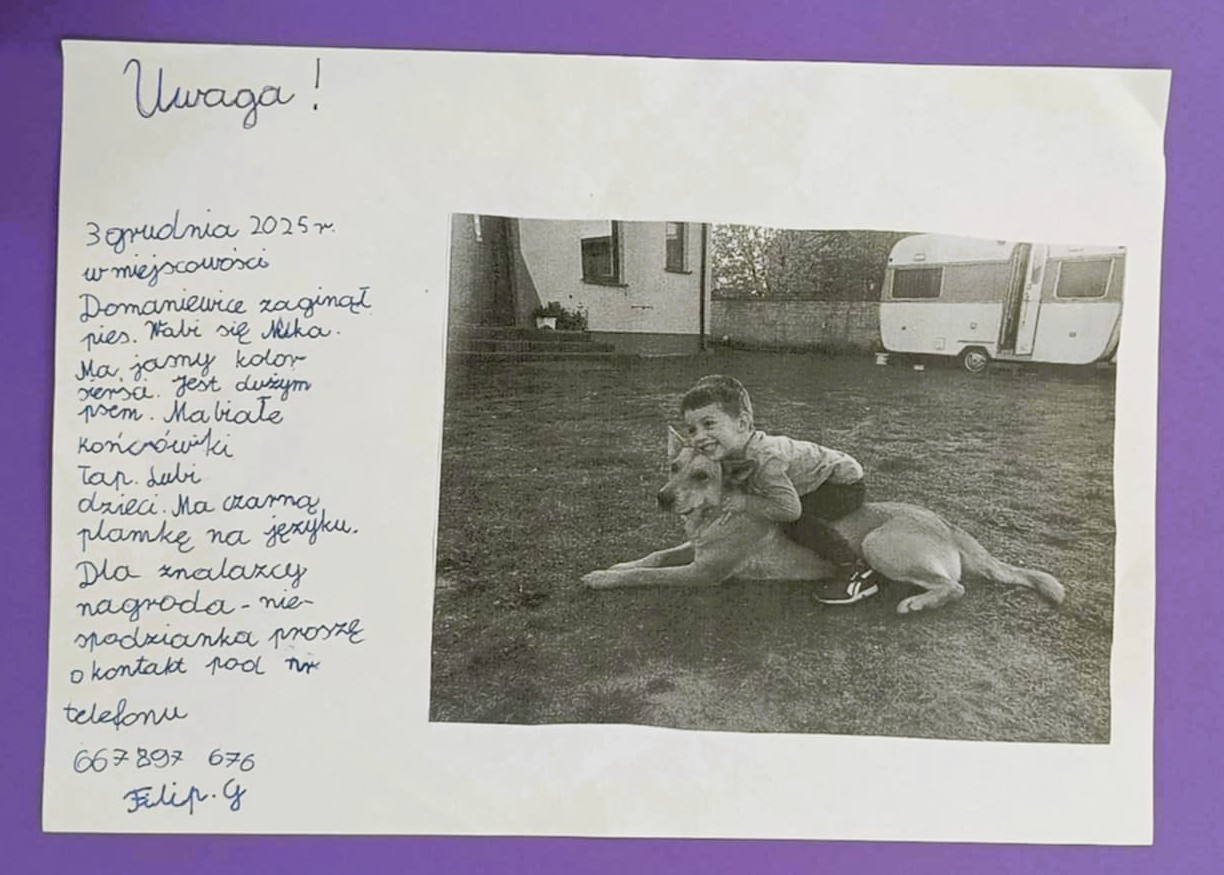 Uwaga!
3 grudnia 2025 r.
w miejscowości
Domaniewice zaginął
pies. Wabi się Nika.
Ma jasny kolor
sierści. Jest dużym
psem. Ma białe
końcówki
łap. Lubi
dzieci. Ma czarną
plamkę na języku.
Dla znalazcy
nagroda - nie-
spodzianka proszę
o kontakt pod nr
telefonu
667 897 676
Filip. G